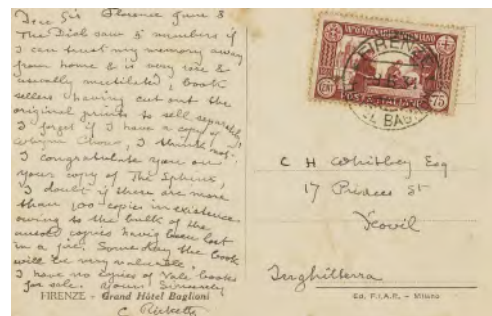 Dear Sir Florence June 8
The Dial saw 5 numbers if
I can trust my memory away
from home & is very rare &
usually mutilated, book
sellers having cut out the
original prints to sell separately
I forget if I have a copy of
Chour, I think not.
I congratulate you on
your copy of The Sphinx,
I doubt if there are more
than 100 copies in existence
owing to the bulk of the
unsold copies having been lost
in a fire. Some day the book
will be very valuable.
I have no copies of Vale books
for sale. Yours Sincerely
C Ricketts
FIRENZE - Grand Hôtel Baglioni
FIRENZE
BAGLIONI
CENT
75
POSTE ITALIANE
C H Whitby Esq
17 Princes St
Yeovil
Inghilterra
Ed. F.I.A.R. - Milano